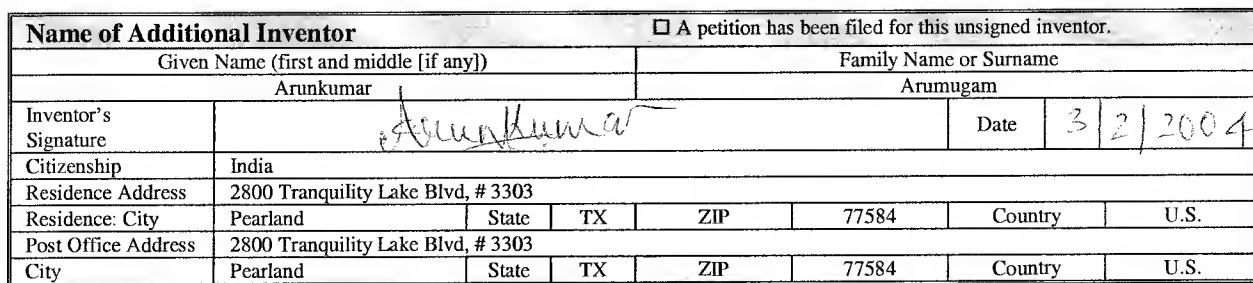 Name of Additional Inventor ☐ A petition has been filed for this unsigned inventor.
Given Name (first and middle [if any]) Family Name or Surname
Arunkumar Arumugam
Inventor's Signature ArunKumar Date 3/2/2004
Citizenship India
Residence Address 2800 Tranquility Lake Blvd, # 3303
Residence: City Pearland State TX ZIP 77584 Country U.S.
Post Office Address 2800 Tranquility Lake Blvd, # 3303
City Pearland State TX ZIP 77584 Country U.S.